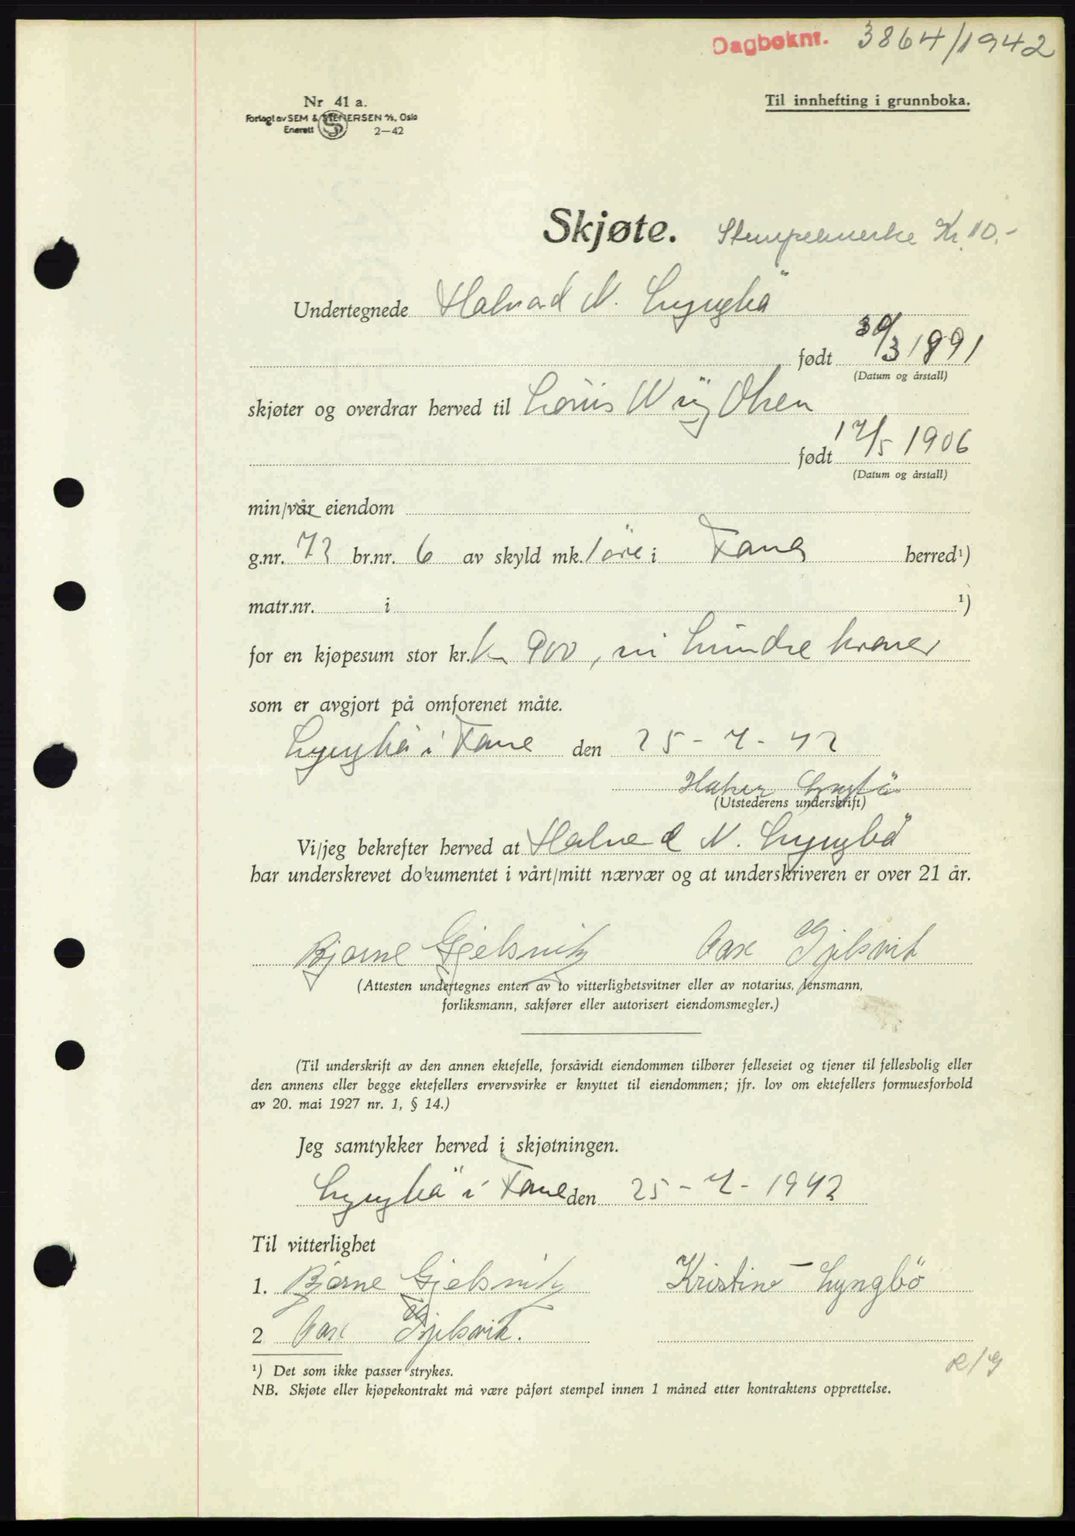 Dagboknr. 3864/1942
Nr 41 a.
Til innhefting i grunnboka.
Forlagt av SEM & STENERSEN A/S, Oslo
Enerett 2-42
Skjøte. Stempelmerke Kr. 10.-
Undertegnede Halvard N. Lyngbö
født 30/3 1891
(Datum og årstall)
skjøter og overdrar herved til Louis Wiig Olsen
født 17/5 1906
(Datum og årstall)
min/vår eiendom
g.nr. 72 br.nr. 6 av skyld mk. 1 öre i Fana herred¹)
matr.nr. i ¹)
for en kjøpesum stor kr. kr 900, ni hundre kroner
som er avgjort på omforenet måte.
Lyngbö i Fane den 25-7-42
Lyngbö
(Utstederens underskrift)
Vi/jeg bekrefter herved at Halvard N. Lyngbö
har underskrevet dokumentet i vårt/mitt nærvær og at underskriveren er over 21 år.
Bjarne Gjelsvik Gjelsvik
(Attesten undertegnes enten av to vitterlighetsvitner eller av notarius, lensmann,
forliksmann, sakfører eller autorisert eiendomsmegler.)
(Til underskrift av den annen ektefelle, forsåvidt eiendommen tilhører felleseiet og tjener til fellesbolig eller
den annens eller begge ektefellers ervervsvirke er knyttet til eiendommen; jfr. lov om ektefellers formuesforhold
av 20. mai 1927 nr. 1, § 14.)
Jeg samtykker herved i skjøtningen.
Lyngbö i Fane den 25-7-1942
Til vitterlighet
1. Bjarne Gjelsvik Kristine Lyngbö
2 Gjelsvik.
¹) Det som ikke passer strykes.
R/G
NB. Skjøte eller kjøpekontrakt må være påført stempel innen 1 måned etter kontraktens opprettelse.